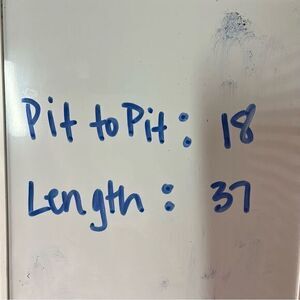 Pit to Pit: 18
Length: 37